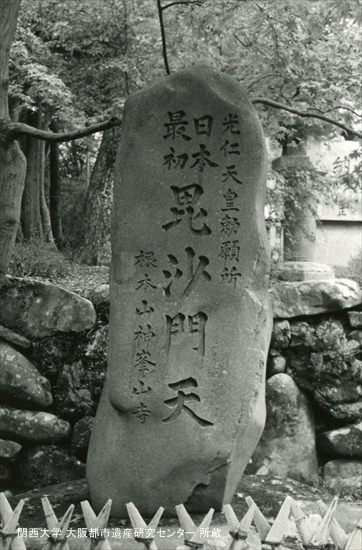 光仁天皇勅願所
日本
最初
毘沙門天
根本山神峯山寺
関西大学 大阪都市遺産研究センター 所蔵